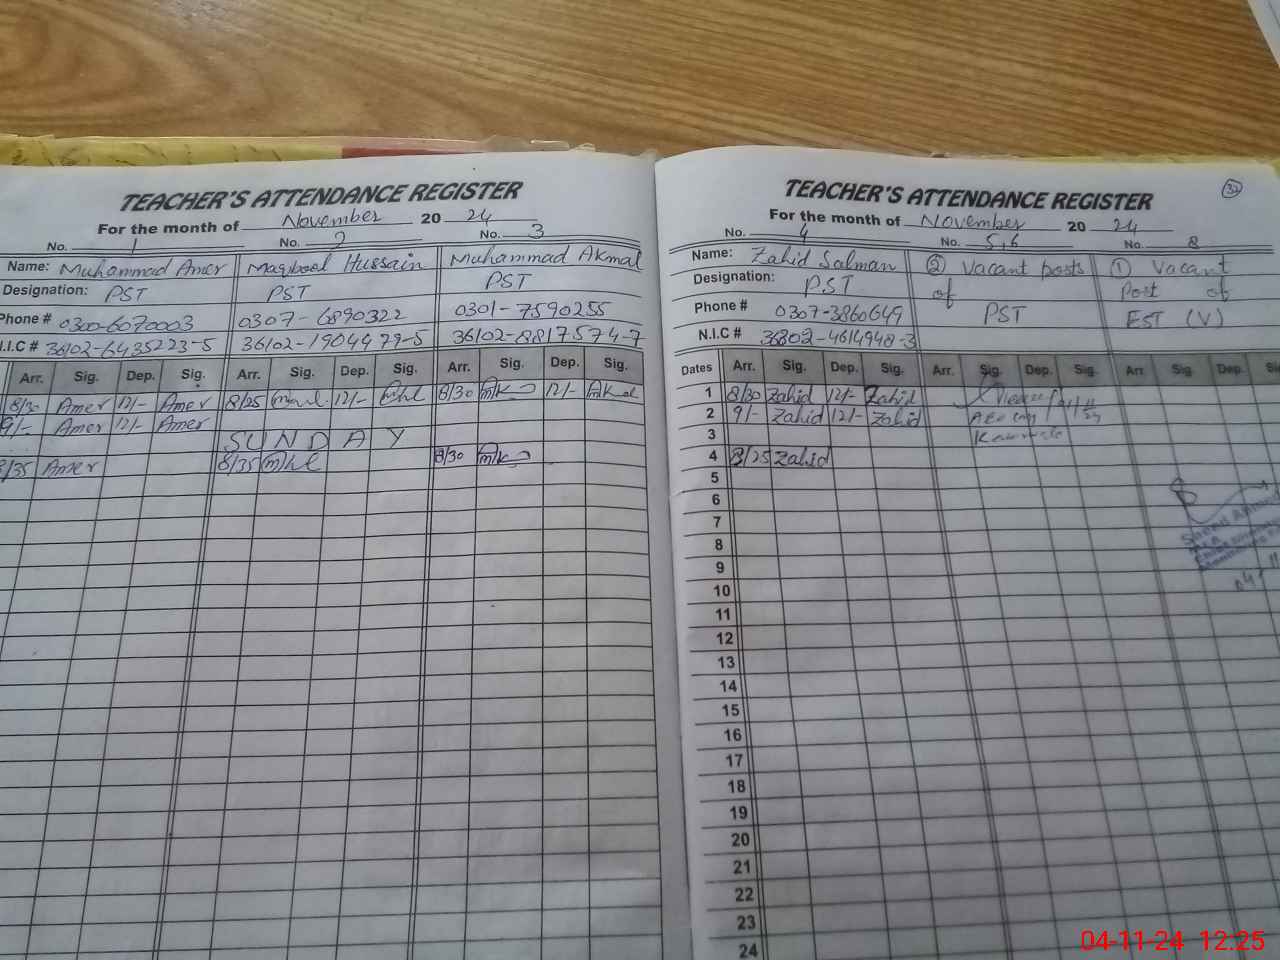 TEACHER'S ATTENDANCE REGISTER
For the month of November 2024
No. 1 No. 2 No. 3
Name: Muhammad Amer Maqbool Hussain Muhammad Akmal
Designation: PST PST PST
Phone # 0300-6070003 0307-6890322 0301-7590255
N.I.C # 36102-6435223-5 36102-1904479-5 36102-8817574-7
Arr. Sig. Dep. Sig. Arr. Sig. Dep. Sig. Arr. Sig. Dep. Sig.
8/30 Amer 12/- Amer 8/25 12/- 8/30 12/- Akmal
9/- Amer 12/- Amer
SUNDAY
8/35 Amer 8/35 8/30
32
TEACHER'S ATTENDANCE REGISTER
For the month of November 2024
No. 4 No. 5,6 No. 8
Name: Zahid Salman ② Vacant posts ① Vacant
Designation: PST of Post of
Phone # 0307-3860649 PST EST (V)
N.I.C # 36302-4614948-3
Dates Arr. Sig. Dep. Sig. Arr. Sig. Dep. Sig. Arr. Sig. Dep.
1 8/30 Zahid 12/- Zahid
2 9/- Zahid 12/- Zahid
3
4 8/25 Zahid
5
6
7
8
9
10
11
12
13
14
15
16
17
18
19
20
21
22
23
24
04-11-24 12:25